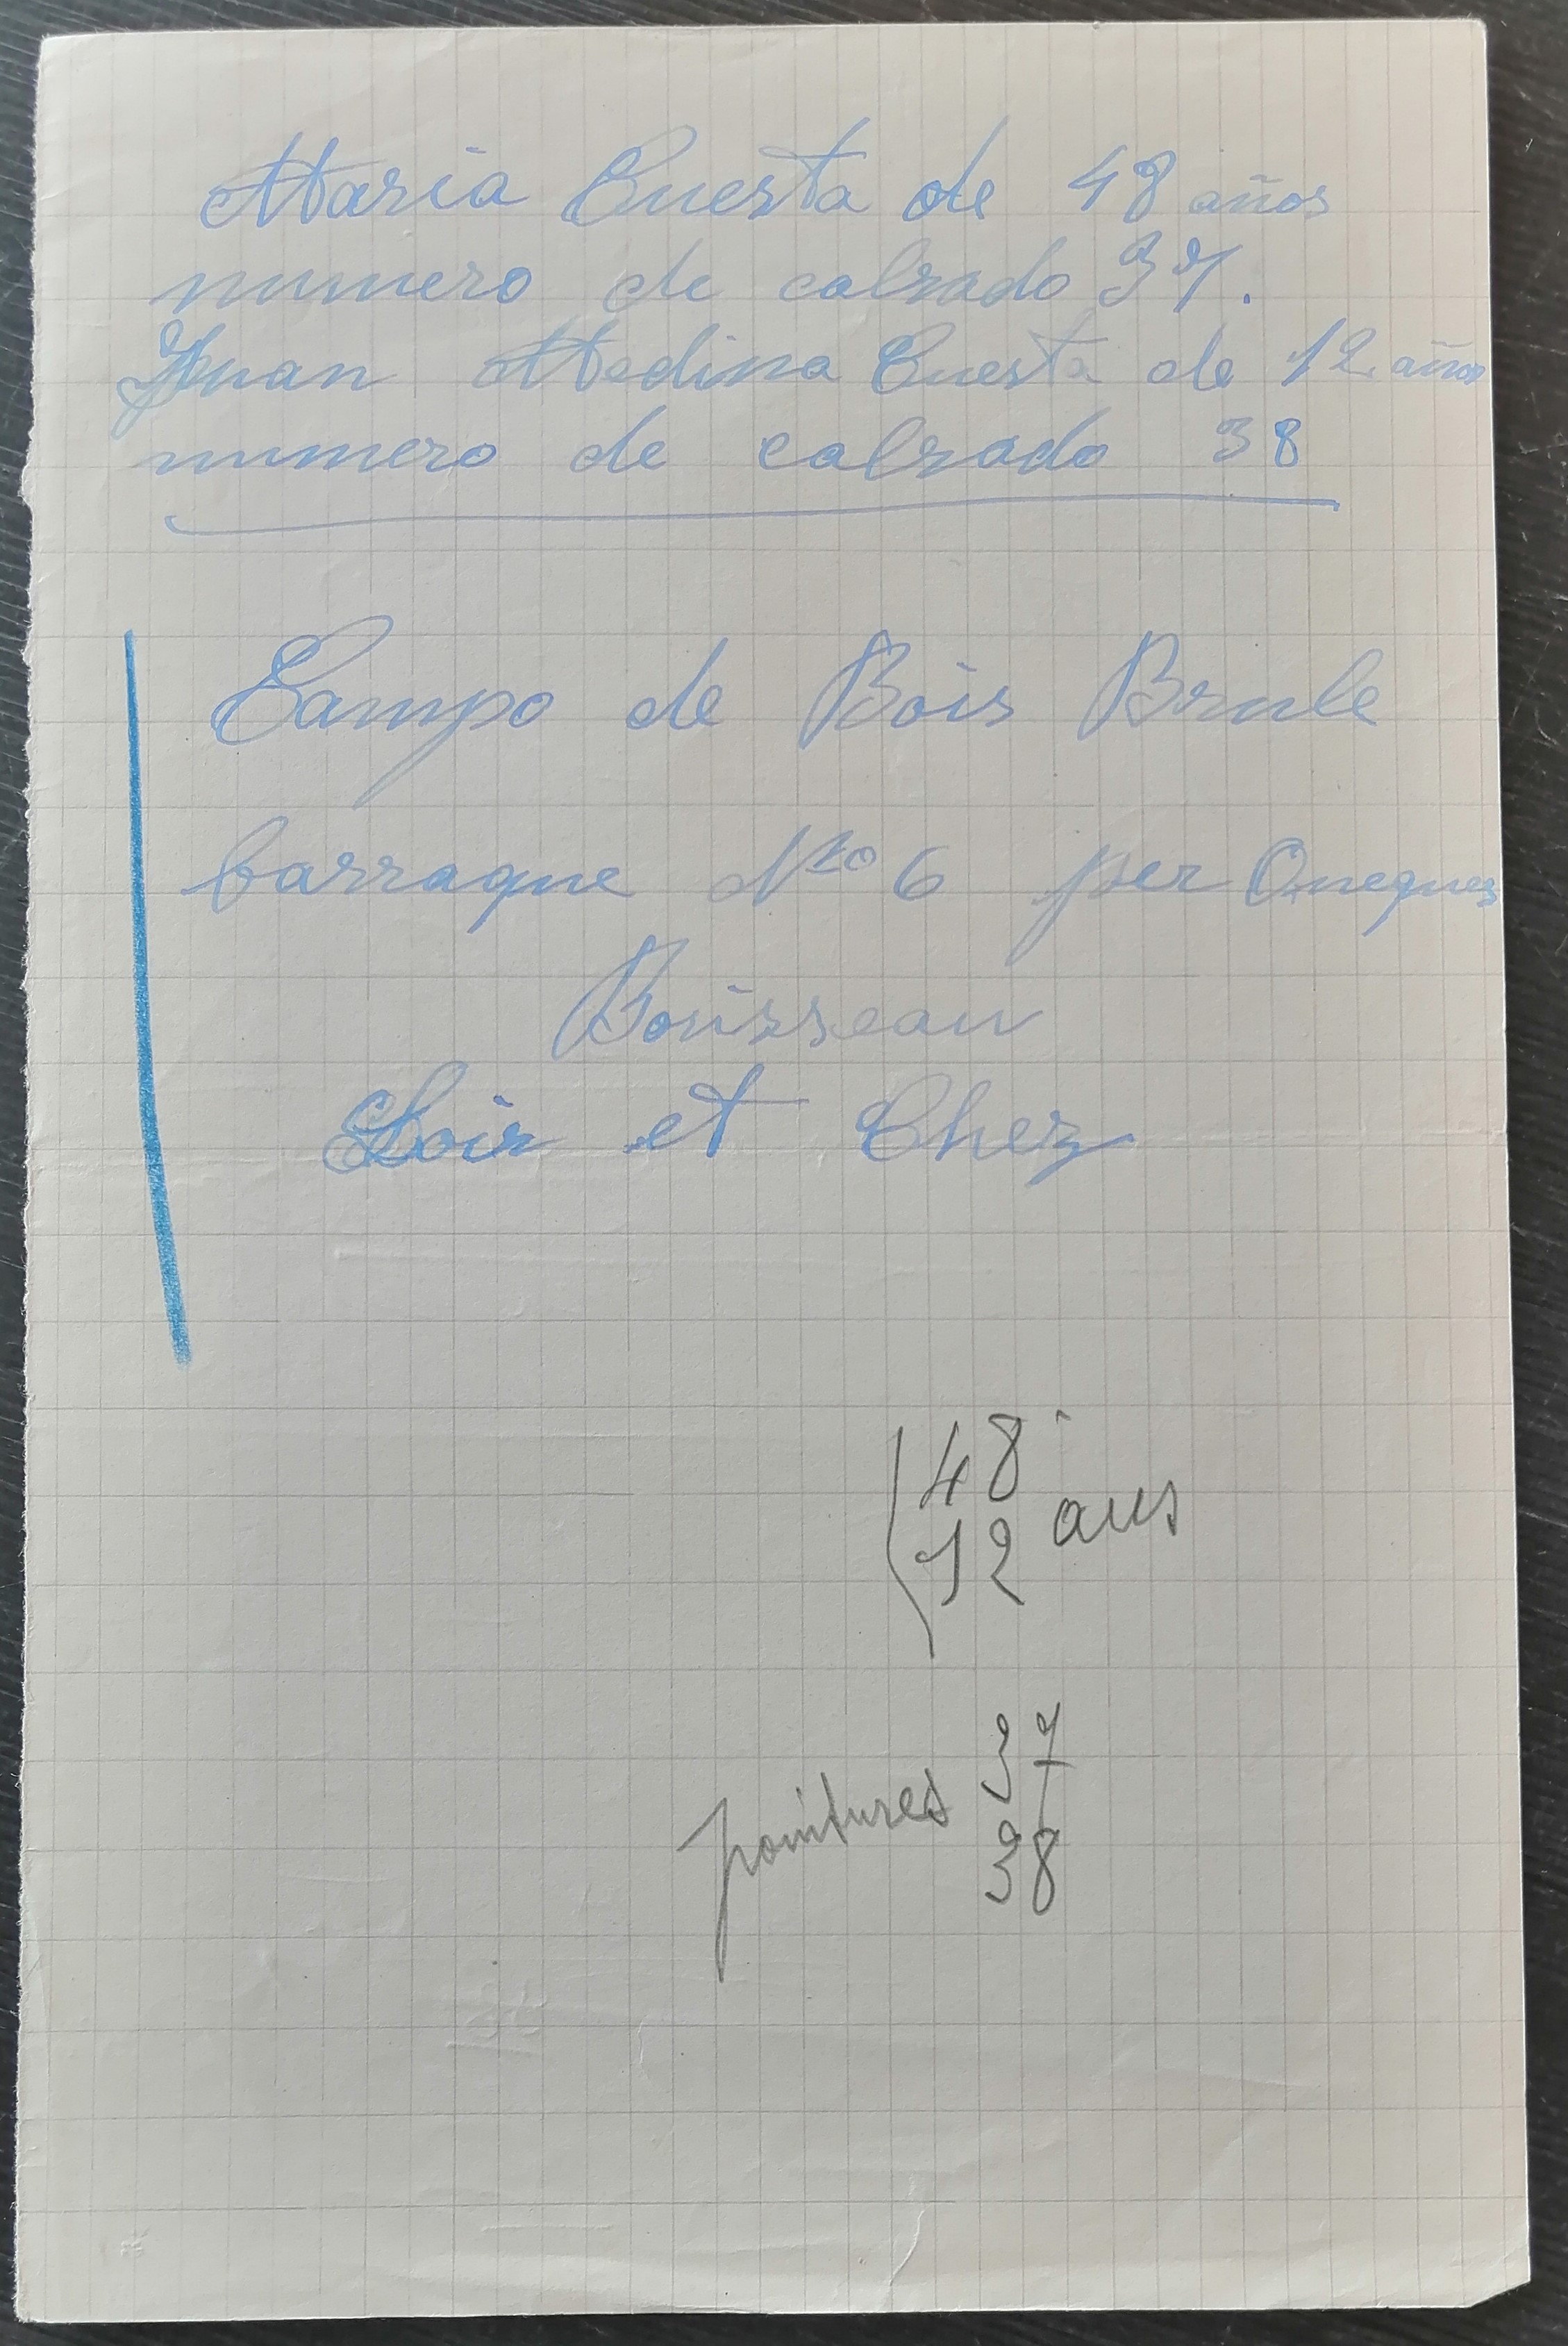 Maria Cuesta de 48 años
numero de calzado 37.
Juan Medina Cuesta de 12 años
numero de calzado 38
Campo de Bois Brule
barraque Nro 6 per Oneques
Bouisseau
Loir et Chez
48
12 ans
pointures 37
38